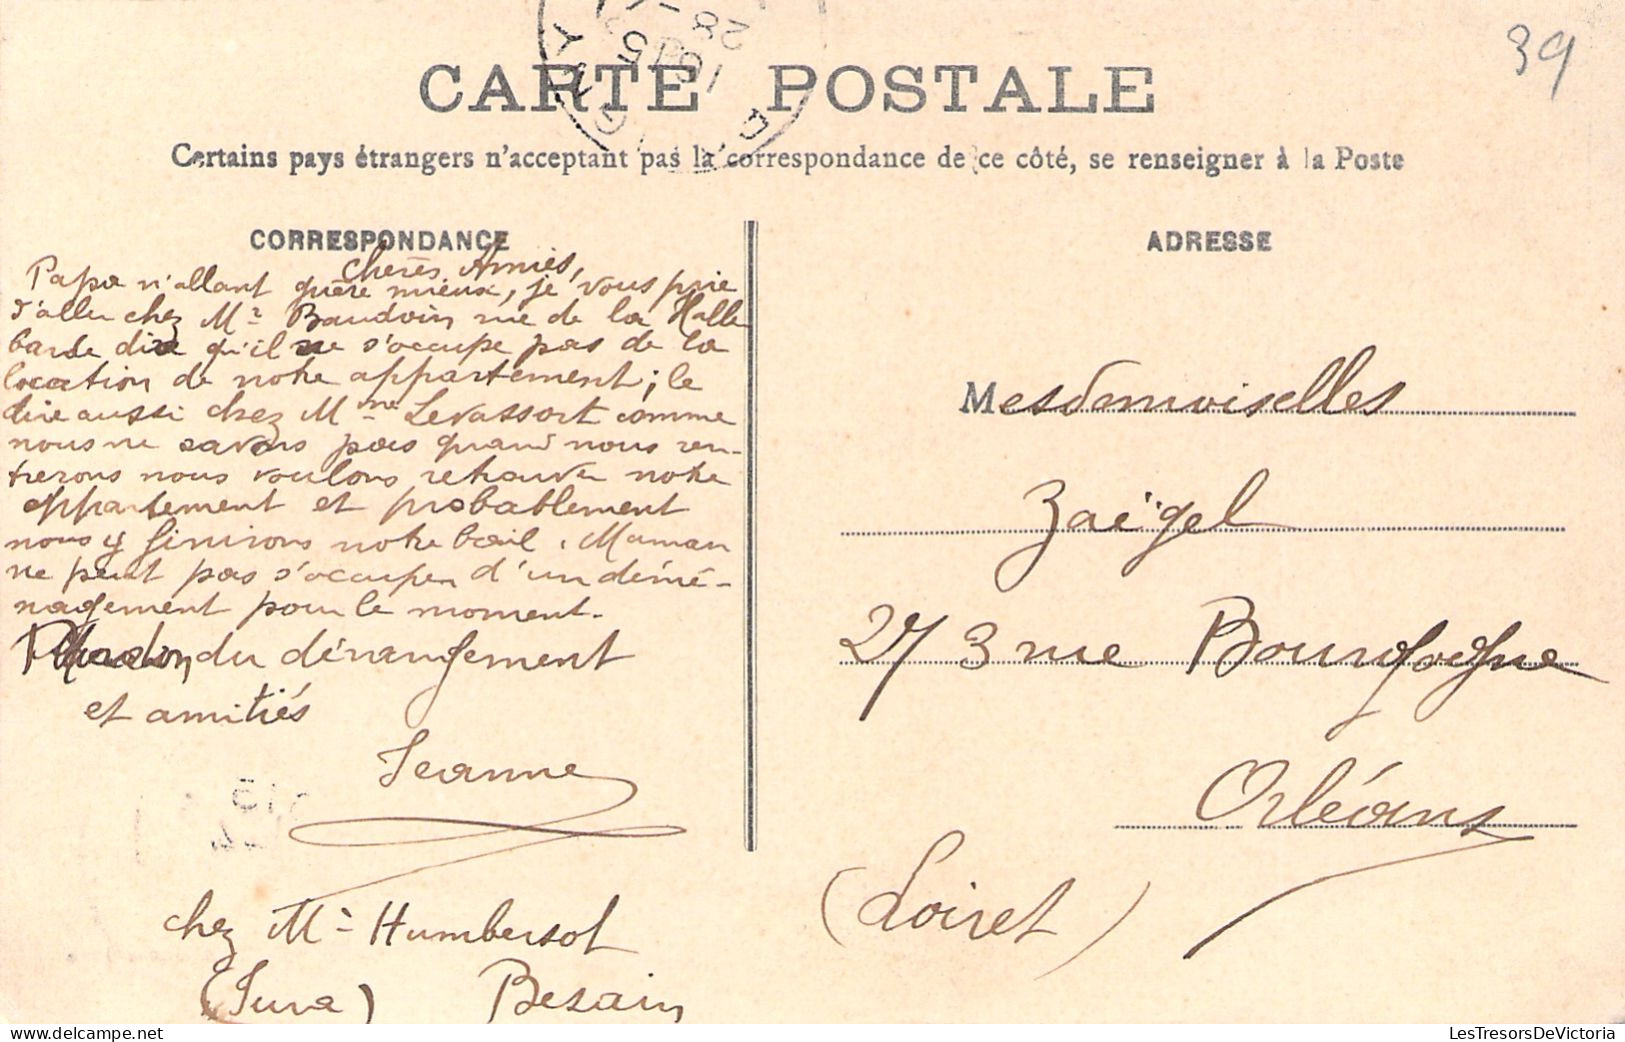 39
CARTE POSTALE
Certains pays étrangers n'acceptant pas la correspondance de ce côté, se renseigner à la Poste
CORRESPONDANCE
Chères Amies,
Papa n'allant guère mieux, je vous prie
d'aller chez Mr Baudoin rue de la Halle
barde dire qu'il ne s'occupe pas de la
location de notre appartement; le
dire aussi chez Mme Levassort comme
nous ne savons pas quand nous ren-
trerons nous voulons retrouver notre
appartement et probablement
nous y finirons notre bail. Maman
ne peut pas s'occuper d'un démé-
nagement pour le moment.
Pardon du dérangement
et amitiés
Jeanne
chez Mr Humbersot
(Jura) Besain
ADRESSE
Mesdemoiselles
Zaëgel
273 rue Bourgogne
Orléans
(Loiret)
delcampe.net
LesTresorsDeVictoria